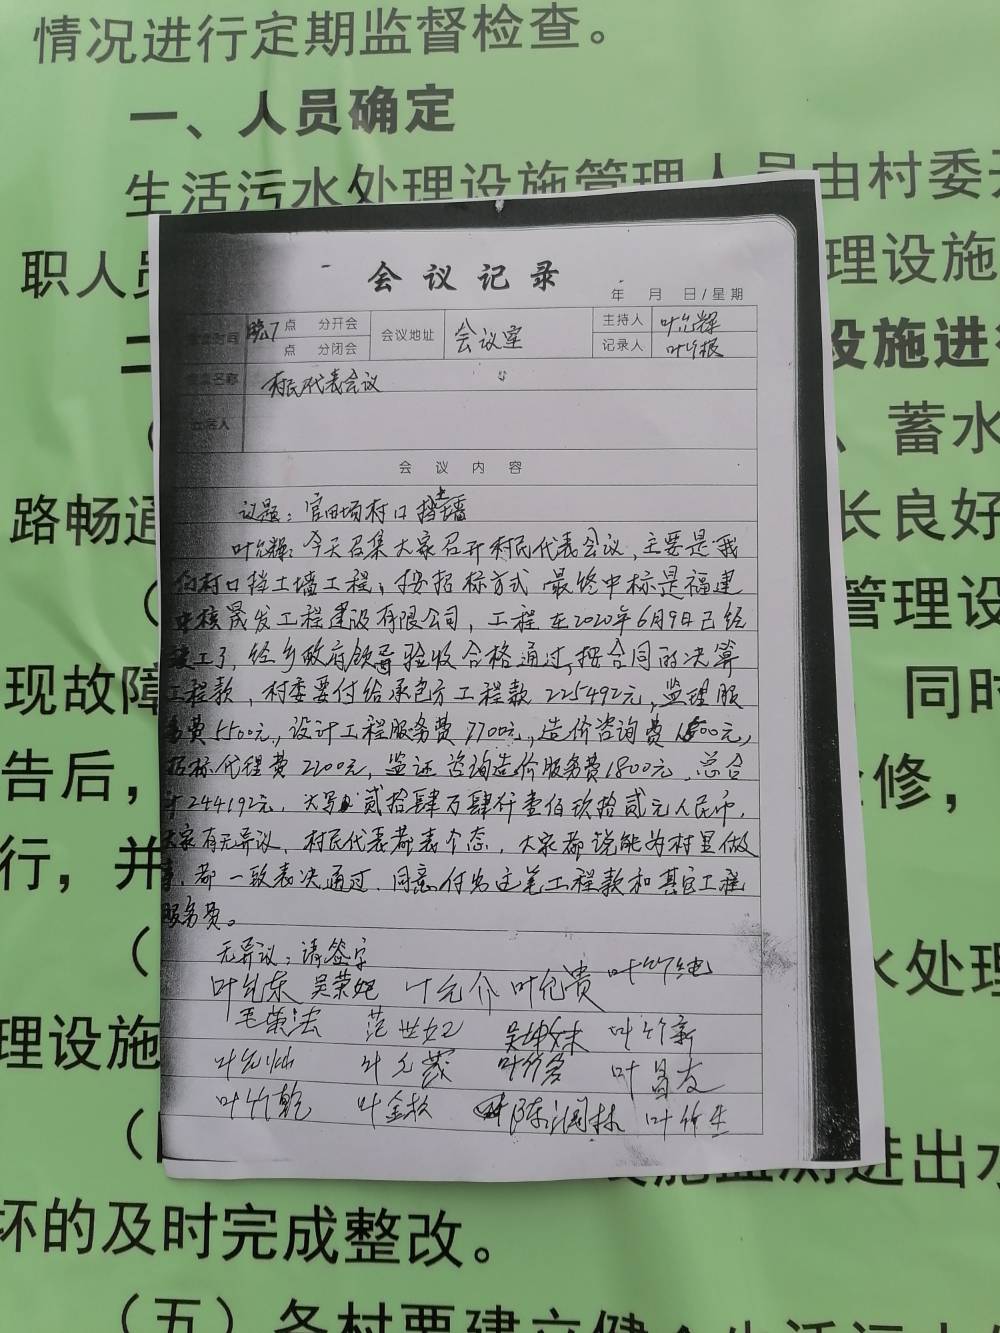 情况进行定期监督检查。
一、人员确定
生活污水处理设施管理人员由村委
职人
理设施
设施进
、蓄水
路畅通
长良好
管理设
现故障
同时
告后，
修，
行，并
水处理
理设施
进出水
环的及时完成整改。
（五）各村要建立健全生活污水
会议记录
年 月 日/星期
晚7点 分开会
点 分闭会
会议地址
会议室
主持人
叶允辉
记录人
叶竹报
名称
村民代表会议
会议内容
议题：官田场村口挡土墙
叶允辉：今天召集大家召开村民代表会议，主要是我
们村口挡土墙工程，按招标方式 最终中标是福建
中核晟发工程建设有限公司，工程在2020年6月9日已经
竣工了，经乡政府领导验收合格通过，按合同的决算
工程款，村委要付给承包方工程款225492元，监理服
务费5500元，设计工程服务费7700元，造价咨询费1500元，
招标代理费2200元，监证咨询造价服务费1800元，总合
计244192元，大写：贰拾肆万肆仟壹佰玖拾贰元人民币，
大家有无异议，村民代表都表个态，大家都说能为村里做
事，都一致表决通过，同意付出这笔工程款和其它工程
服务费。
无异议：请签字
叶允东 吴荣妃 叶允介 叶允贵 叶竹纯
毛荣法 范世妃 吴坤妹 叶竹新
叶允灿 叶允茂 叶竹多 叶昌友
叶竹乾 叶金松 陈润林 叶竹生